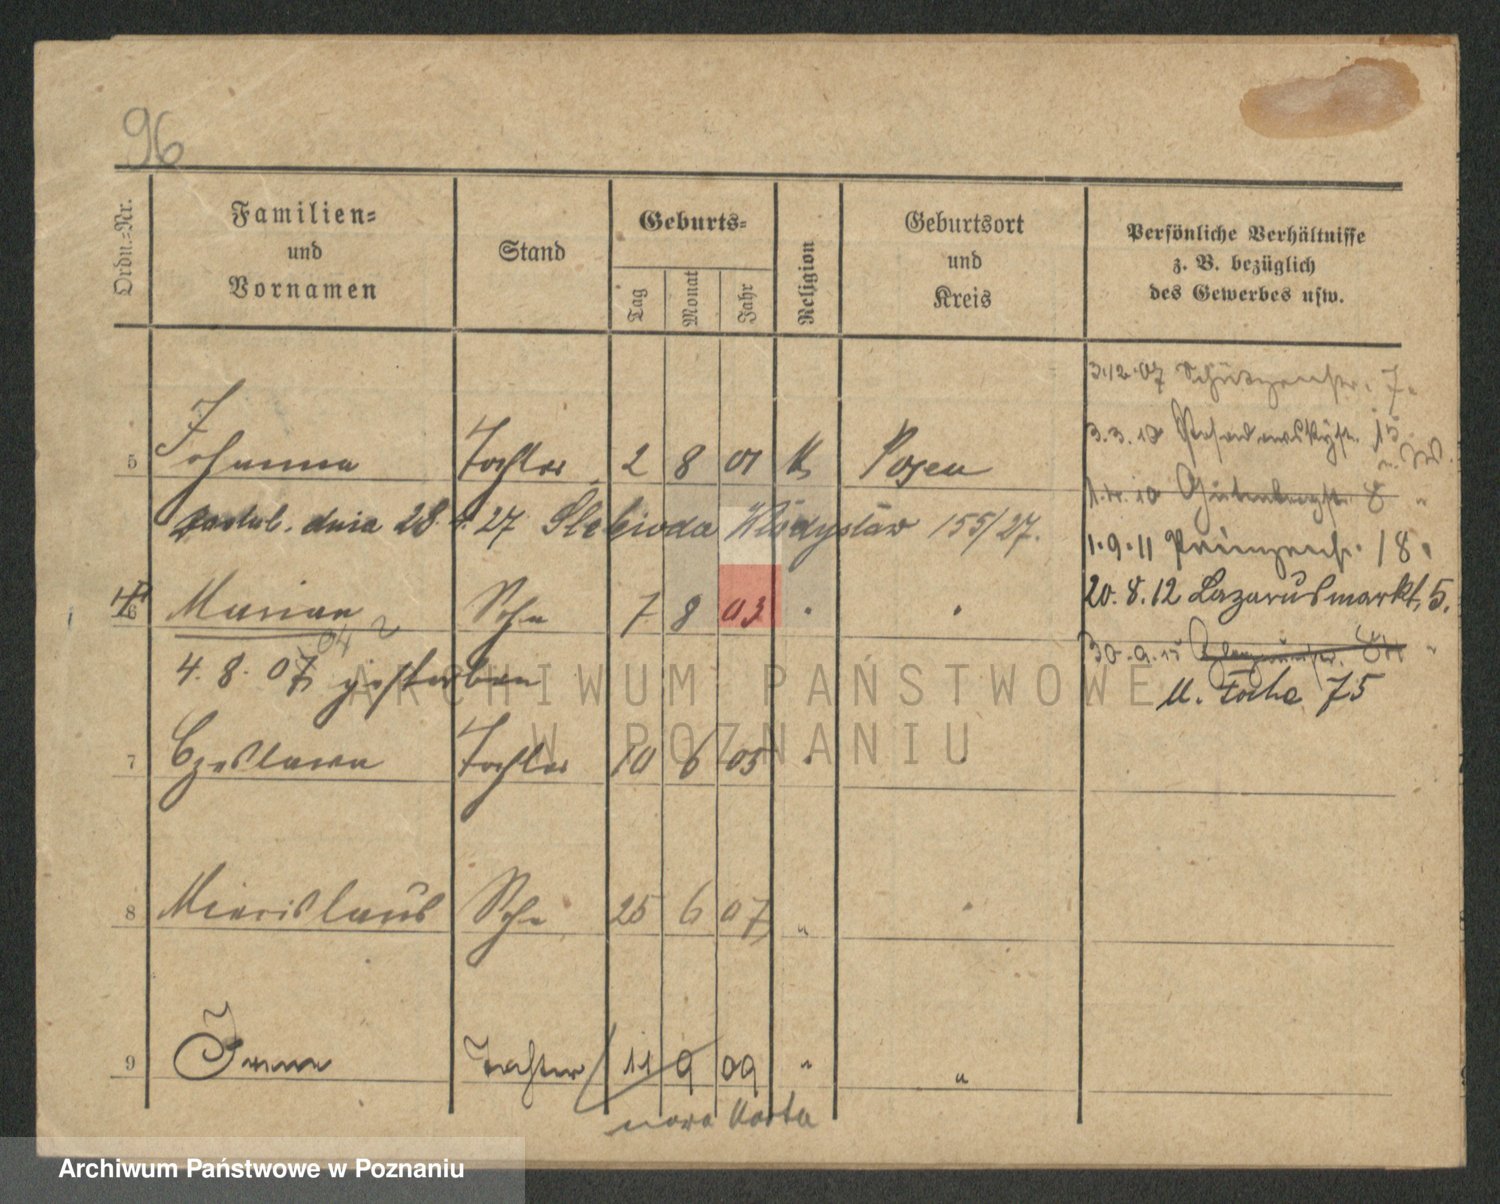 96
Ordn.-Nr.
Familien-
und
Vornamen
Stand
Geburts-
Tag
Monat
Jahr
Religion
Geburtsort
und
Kreis
Persönliche Verhältnisse
z. B. bezüglich
des Gewerbes usw.
3.12.07 Schützenstr. 7.
3.3.10 15
5 Johanna Tochter 2 8 01 K Posen
1.4.10 Gutenbergstr. 8 "
dnia 28. 4. 27 Słebioda Władysław 155/27.
1.9.11 Prinzenstr. 18.
20.8.12 Lazarusmarkt, 5.
6 Marian Sohn 7 8 03 " "
30.9.15
4. 8. 07 gestorben
M. Focha 75
ARCHIWUM PAŃSTWOWE
W POZNANIU
7 Czeslawa Tochter 10 6 05 "
8 Miecislaus Sohn 25 6 07 " "
9 Irena Tochter 11 9 09 " "
nowa karta
Archiwum Państwowe w Poznaniu